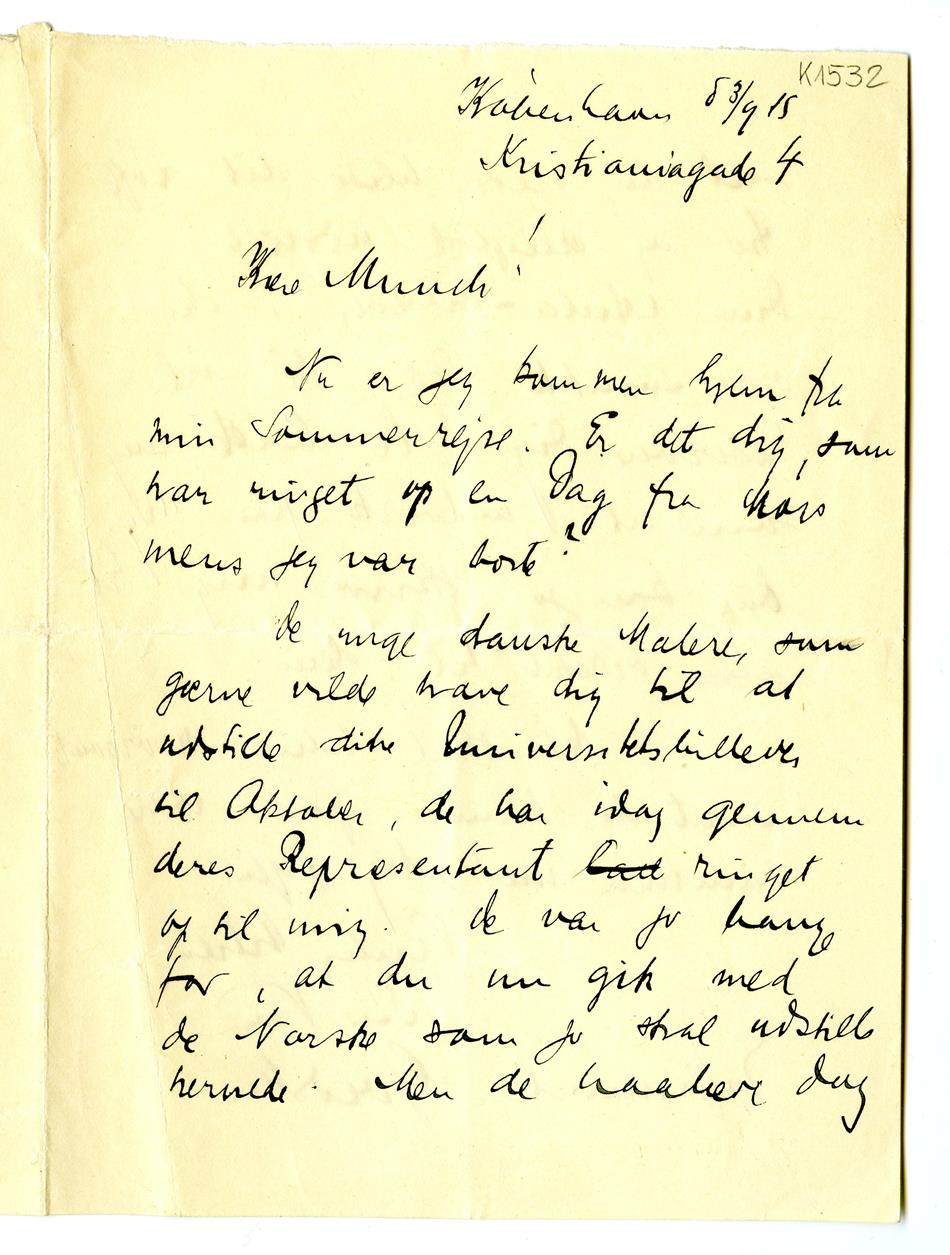 K1532
København d 3/9 15
Kristianiagade 4
Kære Munch!
Nu er jeg kommen hjem fra
min Sommerrejse. Er det dig, som
har ringet op en Dag fra Moss
mens jeg var borte?
De unge danske Malere, som
gærne vilde have dig til at
udstille dine Universitetsbilleder
til Oktober, de har idag gennem
deres Repræsentant ringet
op til mig. De var jo bange
for, at du nu gik med
de Norske som jo skal udstille
hernede. Men de haabede dog